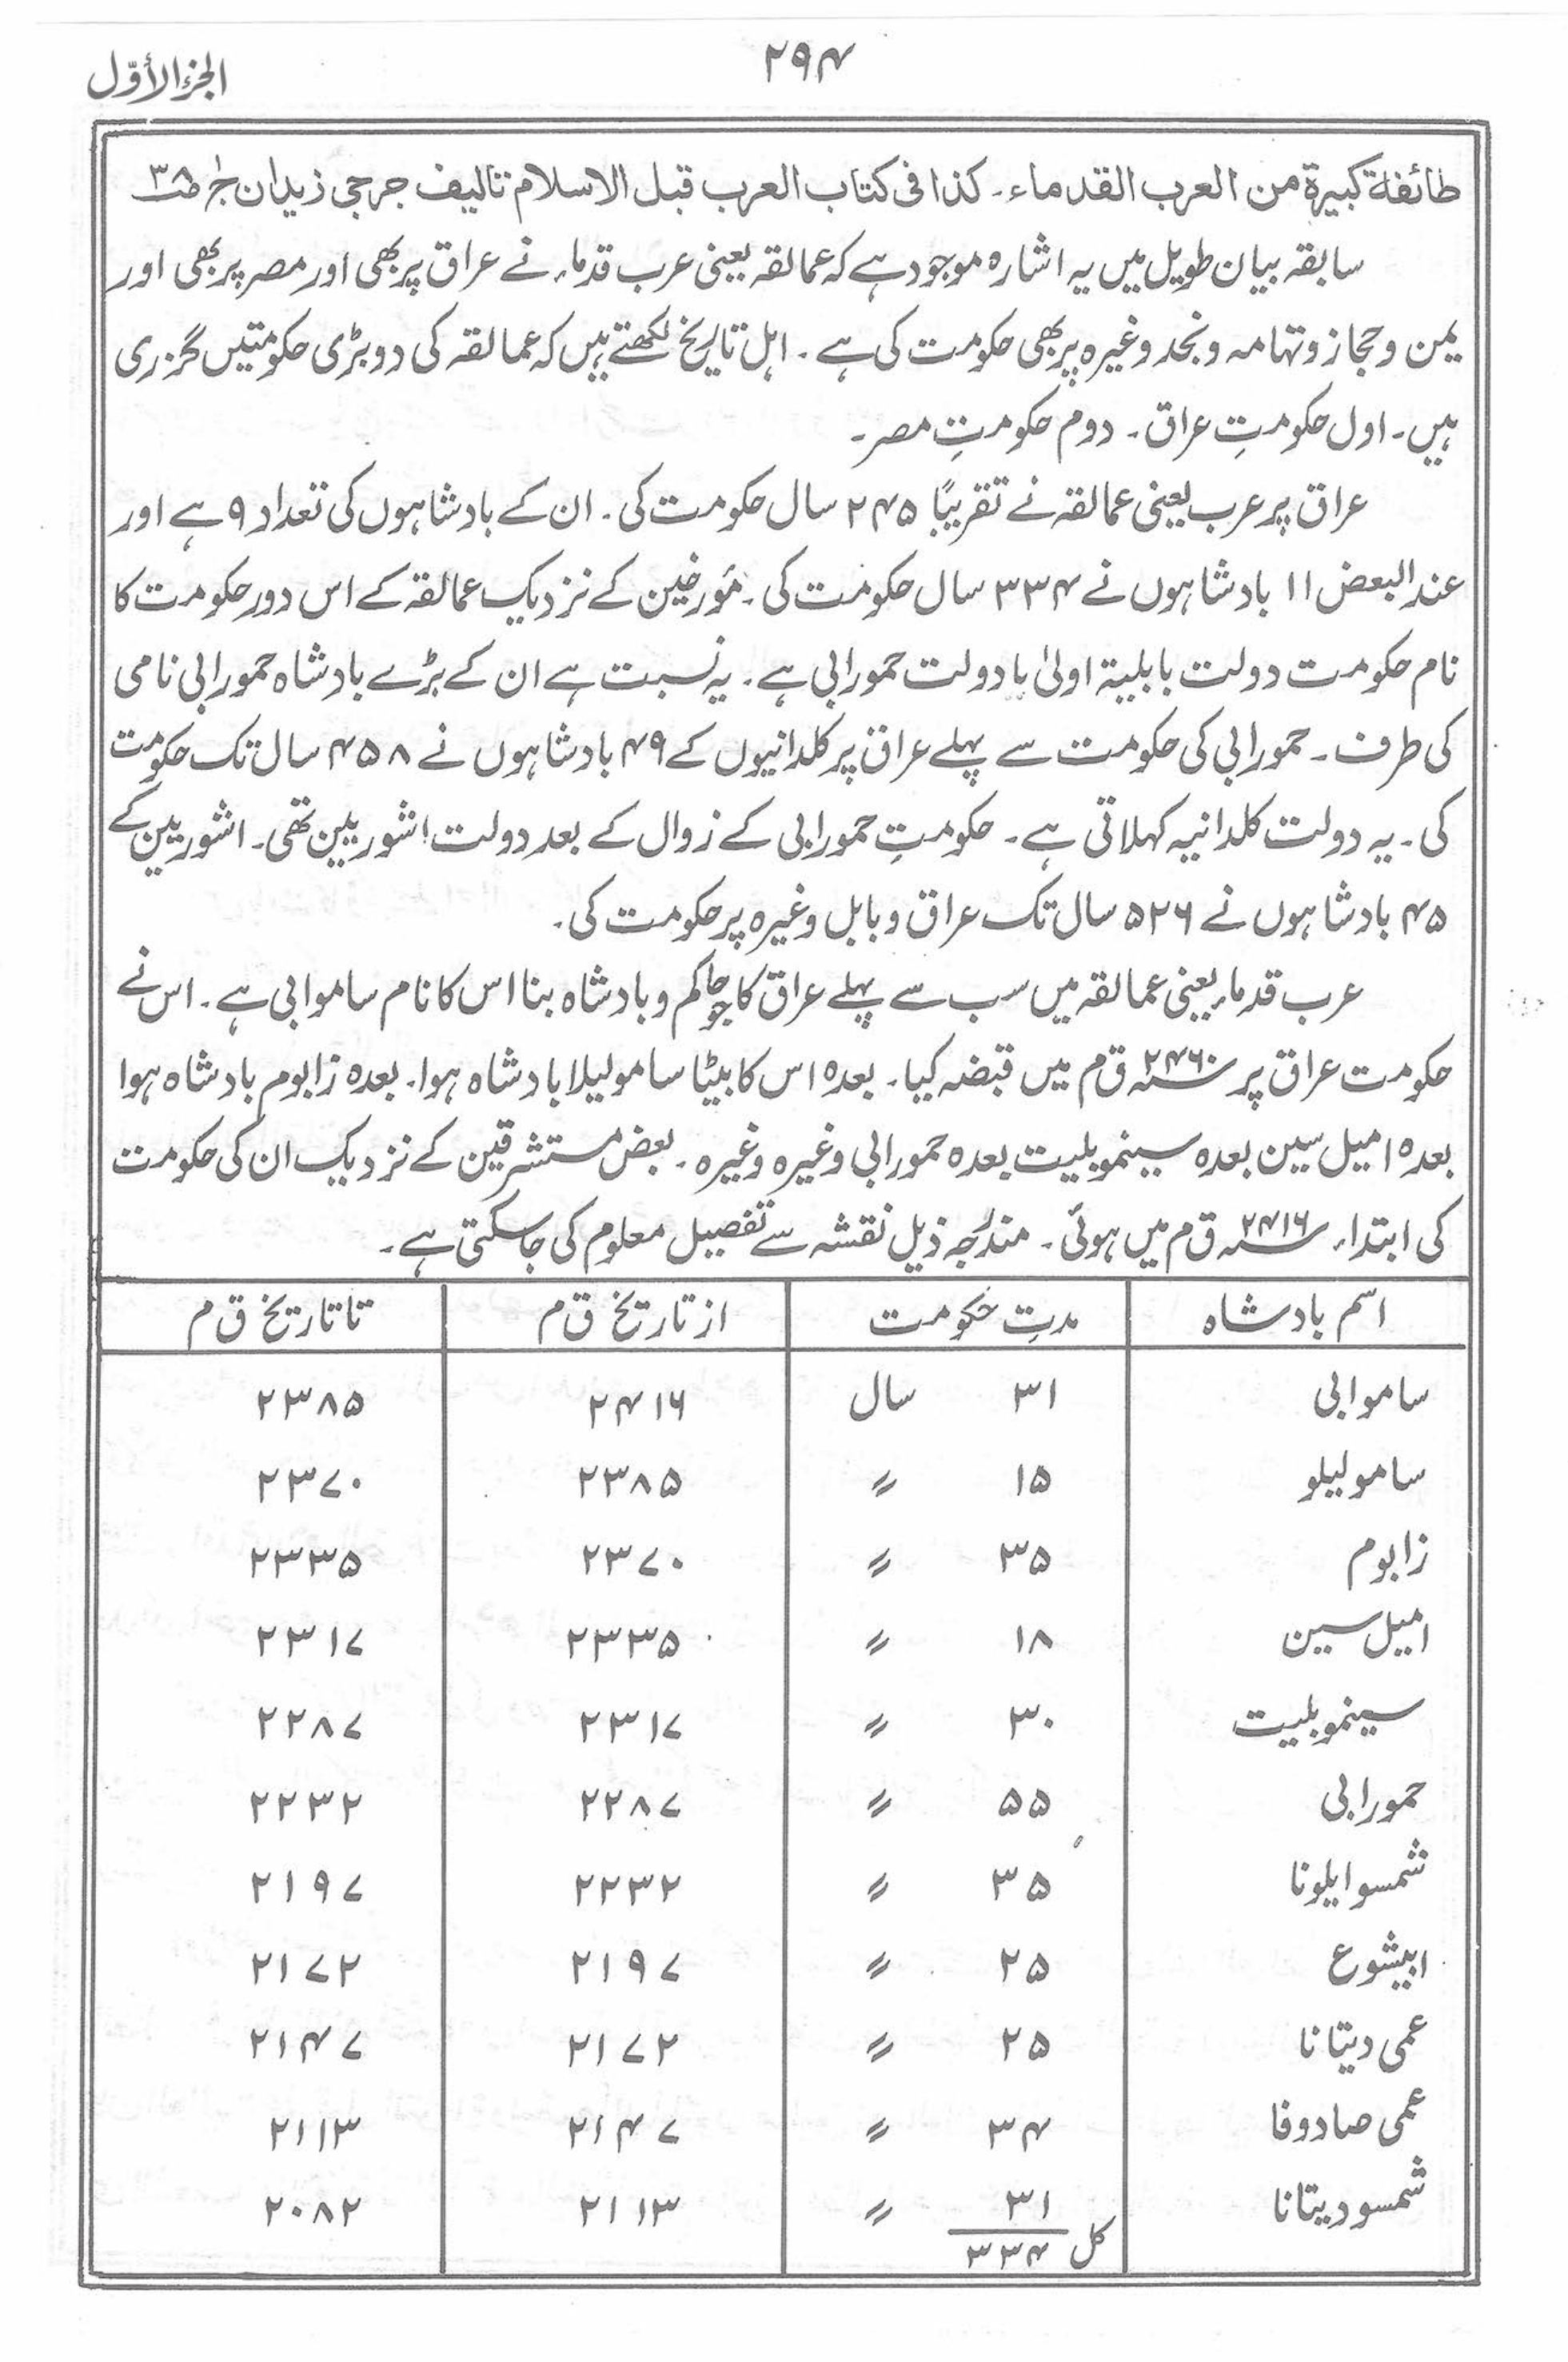 ۲۹۴
الجزء الأوّل
طائفة كبيرة من العرب القدماء۔ كذا فى كتاب العرب قبل الاسلام تاليف جرجى زيدان ج۱ ص۳۸
سابقہ بیان طویل میں یہ اشارہ موجود ہے کہ عمالقہ یعنی عرب قدماء نے عراق پر بھی اور مصر پر بھی اور
یمن وحجاز وتہامہ ونجد وغیرہ پر بھی حکومت کی ہے ۔ اہل تاریخ لکھتے ہیں کہ عمالقہ کی دو بڑی حکومتیں گزری
ہیں۔ اول حکومتِ عراق۔ دوم حکومتِ مصر۔
عراق پر عرب یعنی عمالقہ نے تقریبًا ۲۴۵ سال حکومت کی۔ ان کے بادشاہوں کی تعداد ۹ ہے اور
عند البعض ۱۱ بادشاہوں نے ۳۳۴ سال حکومت کی ۔ مؤرخین کے نزدیک عمالقہ کے اس دور حکومت کا
نام حکومت دولت بابلیۃ اولیٰ یا دولت حمورابی ہے ۔ یہ نسبت ہے ان کے بڑے بادشاہ حمورابی نامی
کی طرف ۔ حمورابی کی حکومت سے پہلے عراق پر کلدانیوں کے ۴۹ بادشاہوں نے ۴۵۸ سال تک حکومت
کی ۔ یہ دولت کلدانیہ کہلاتی ہے ۔ حکومتِ حمورابی کے زوال کے بعد دولت اشوریین تھی ۔ اشوریین کے
۴۵ بادشاہوں نے ۵۲۶ سال تک عراق وبابل وغیرہ پر حکومت کی ۔
عرب قدماء یعنی عمالقہ میں سب سے پہلے عراق کا جو حاکم وبادشاہ بنا اس کا نام ساموابی ہے ۔ اس نے
حکومت عراق پر ۲۴۶۰؁ ق م میں قبضہ کیا ۔ بعدہ اس کا بیٹا سامولیلا بادشاہ ہوا ۔ بعدہ زابوم بادشاہ ہوا
بعدہ امیل سین بعدہ سینموبلیت بعدہ حمورابی وغیرہ وغیرہ ۔ بعض مستشرقین کے نزدیک ان کی حکومت
کی ابتداء ۲۴۱۶؁ ق م میں ہوئی ۔ مندرجہ ذیل نقشہ سے تفصیل معلوم کی جاسکتی ہے ۔
اسم بادشاہ مدتِ حکومت از تاریخ ق م تا تاریخ ق م
ساموابی ۳۱ سال ۲۴۱۶ ۲۳۸۵
سامولیلو ۱۵ 〃 ۲۳۸۵ ۲۳۷۰
زابوم ۳۵ 〃 ۲۳۷۰ ۲۳۳۵
امیل سین ۱۸ 〃 ۲۳۳۵ ۲۳۱۷
سینموبلیت ۳۰ 〃 ۲۳۱۷ ۲۲۸۷
حمورابی ۵۵ 〃 ۲۲۸۷ ۲۲۳۲
شمسوایلونا ۳۵ 〃 ۲۲۳۲ ۲۱۹۷
ابیشوع ۲۵ 〃 ۲۱۹۷ ۲۱۷۲
عمی دیتانا ۲۵ 〃 ۲۱۷۲ ۲۱۴۷
عمی صادوفا ۳۴ 〃 ۲۱۴۷ ۲۱۱۳
شمسو دیتانا ۳۱ 〃 ۲۱۱۳ ۲۰۸۲
کل ۳۳۴